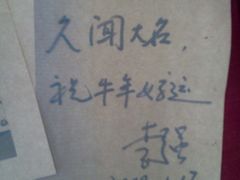 久闻大名，
祝牛年好运
李强